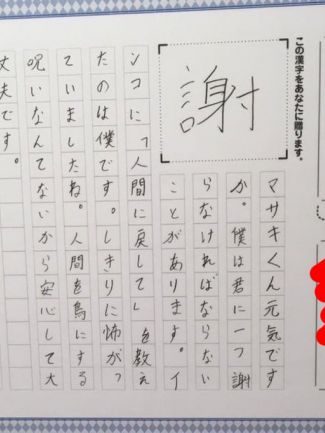 この漢字をあなたに贈ります。
謝
マサキくん元気です
か。僕は君に一つ謝
らなければならない
ことがあります。イ
ンコに「人間に戻して」を教え
たのは僕です。しきりに怖がっ
ていましたね。人間を鳥にする
呪いなんてないから安心して大
丈夫です。